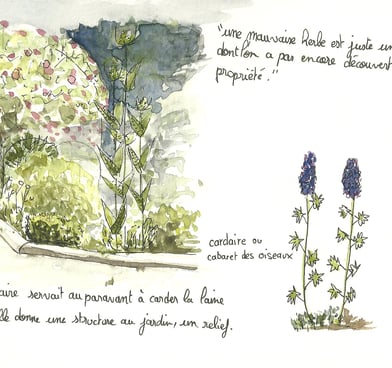 "une mauvaise herbe est juste un
dont l'on a pas encore découvert
propriété."
cardaire ou
cabaret des oiseaux
aire servait auparavant à carder la laine
lle donne une structure au jardin, un relief.